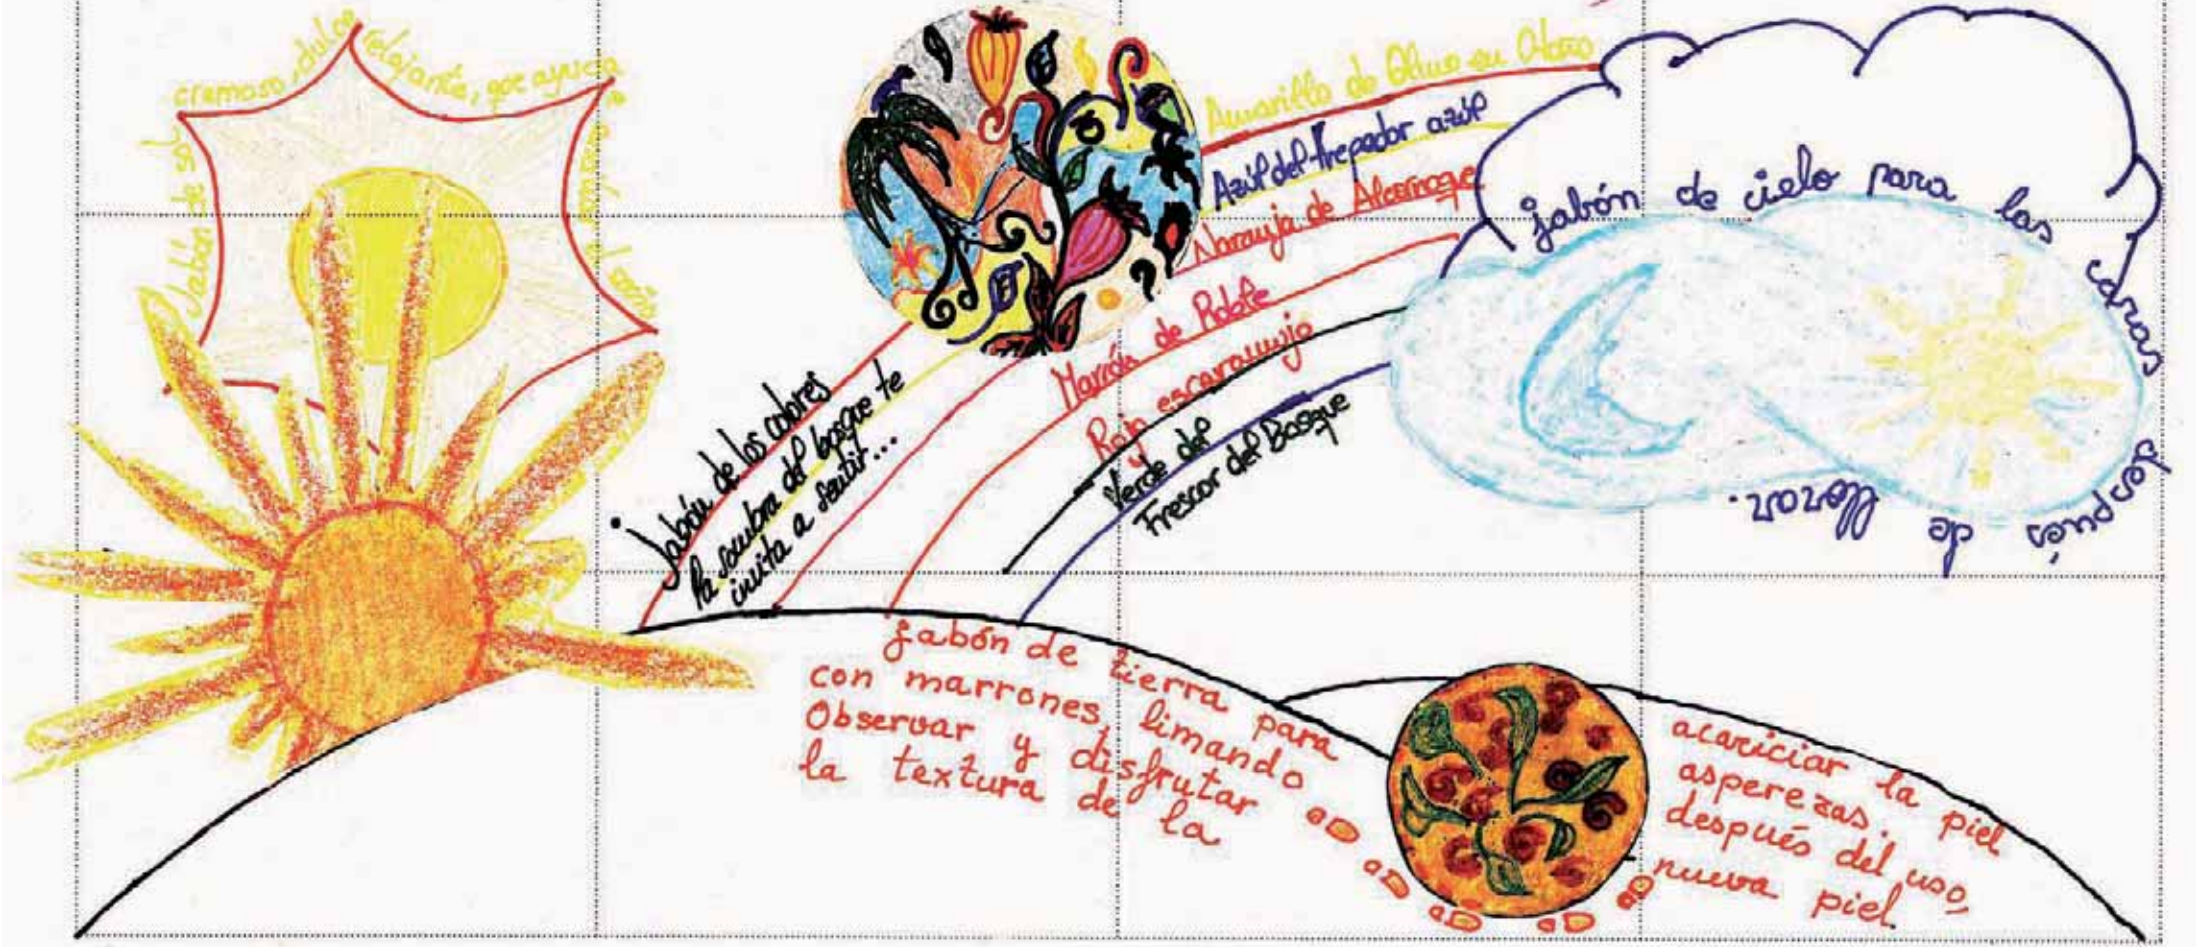 Jabón de sol
cremoso, dulce
relajante, que ayuda
Jabón de los colores
la sombra del bosque te
invita a sentir...
Amarillo de Olmo en Otoño
Azúl del trepador azúl
Naranja de Alcornoque
Marrón de Roble
Rojo escaramujo
y
Verde del
Frescor del Bosque
jabón de cielo para las caras después de llorar.
jabón de tierra para acariciar la piel
con marrones, limando asperezas.
Observar y disfrutar después del uso,
la textura de la nueva piel